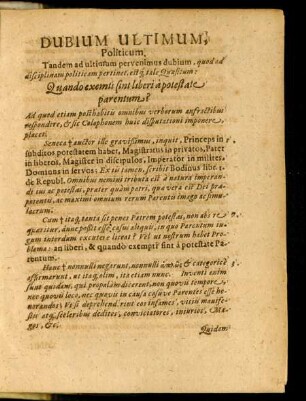 DUBIUM ULTIMUM,
Politicum.
Tandem ad ultimum pervenimus dubium, quod ad
disciplinam politicam pertinet, estq́ tale Quæsitum:
Quando exemti sint liberi à potestate
parentum?
Ad quod etiam posthabitis omnibus verborum anfractibus
respondere, & sic Colophonem huic disputationi imponere
placet:
Seneca † auctor ille gravissimus, inquit, Princeps in
subditos potestatem habet, Magistratus in privatos, Pater
in liberos, Magister in discipulos, Imperator in milites,
Dominus in servos: Ex iis tamen, scribit Bodinus libr. 1.
de Republ. Omnibus nemini tributa est à natura imperan-
di jus ac potestas, præter quàm patri, qua vera est Dei præ-
potentis, ac maximi omnium rerum Parentis imago ac simu-
lacrum.
Cum † itaq́, tanta sit penes Patrem potestas, non abs re
quæritur, dunc possit esse casus aliquis, in quo Parentum iu-
gum interdum excutere liceat? Vel ut nostrum habet Pro-
blema: an liberi, & quando exempti sint à potestate Pa-
rentum.
Hunc † nonnulli negarunt, nonnulli ἁπλῶς & categoricè
affirmarunt, ut itaq́, alim, ita etiam nunc Inventi enim
sunt quidam, qui propalam dicerent, non quovis tempore,
nec quovis loco, nec quavis in causa cosuve Parentes esse ho-
norandos: Vel si deprehenderint eos infames, vitiis manife-
stis atq́, sceleribus deditos, convictatores, injurios, Ma-
gos, &c.
Quidam